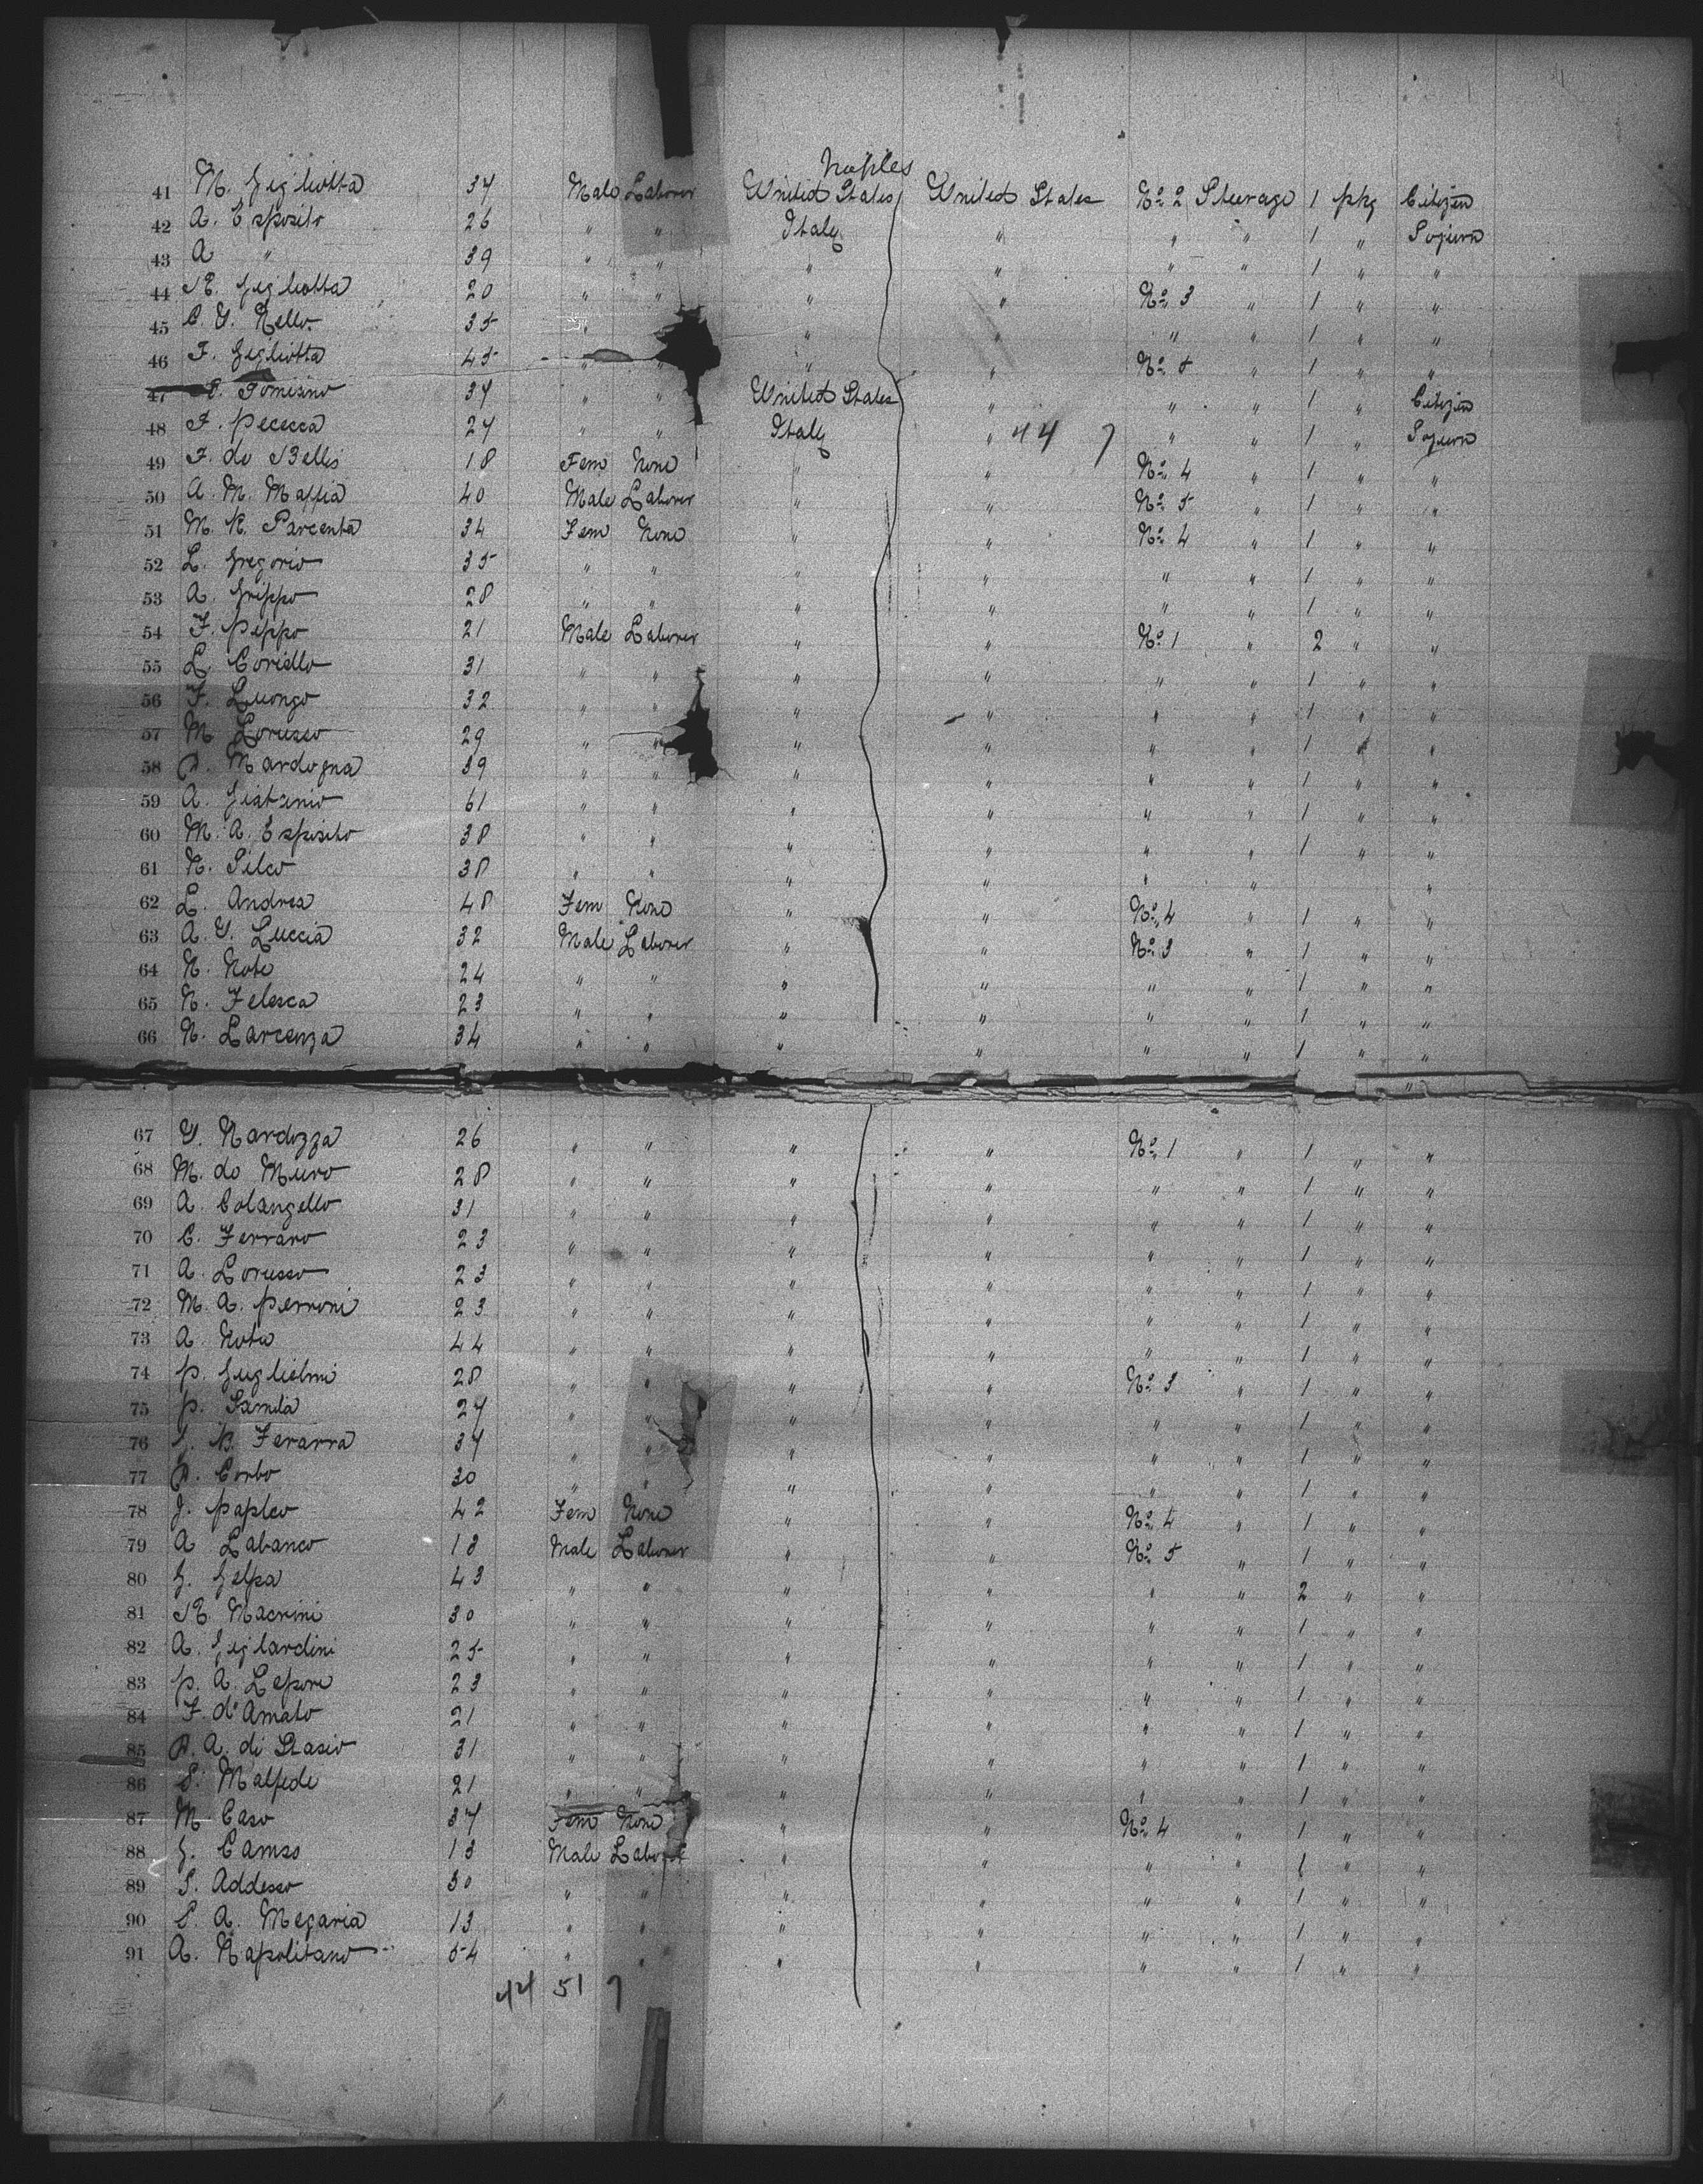 Naples
41 M. Gigliotta 37 Male Laborer United States United States No 2 Steerage 1 pkg Citizen
42 A. Esposito 26 " " Italy " " " 1 " Sojurn
43 A " 39 " " " " " " 1 " "
44 R. Gigliotta 20 " " " " No 3 " 1 " "
45 C. G. Nello 35 " " " " " " 1 " "
46 F. Gigliotta 45 " " " " No 5 " 1 " "
47 Tomisino 37 " " United States " " " 1 " Citizen
48 F. Pececca 27 " " Italy " 44 7 " " 1 " Sojurn
49 F. de Bellis 18 Fem None " " No 4 " 1 " "
50 A. M. Maffia 40 Male Laborer " " No 5 " 1 " "
51 M. R. Parcenta 34 Fem None " " No 4 " 1 " "
52 L. Gregorio 35 " " " " " " 1 " "
53 A. Grippo 28 " " " " " " 1 " "
54 F. Peppo 21 Male Laborer " " No 1 " 2 " "
55 L. Coriello 31 " " " " " " 1 " "
56 F. Luongo 32 " " " " " " 1 " "
57 M Lorusso 29 " " " " " " 1 " "
58 Mardogna 39 " " " " " " 1 " "
59 A. 61 " " " " " " 1 " "
60 M. A. Esposito 38 " " " " " " 1 " "
61 N. Pilco 38 " " " " " " "
62 L. Andrea 48 Fem None " " No 4 " 1 " "
63 A. G. Luccia 32 Male Laborer " " No 3 " 1 " "
64 N. Note 24 " " " " " " 1 " "
65 N. Felesca 23 " " " " " " 1 " "
66 N. Larcenza 34 " " " " " " 1 " "
67 G. Nardozza 26 " " " " No 1 " 1 " "
68 M. de Muro 28 " " " " " " 1 " "
69 A. Colangello 31 " " " " " " 1 " "
70 C. Ferraro 23 " " " " " " 1 " "
71 A. Lorusso 23 " " " " " " 1 " "
72 M. A. Perroni 23 " " " " " " 1 " "
73 A. Noto 44 " " " " " " 1 " "
74 P. Guglielmi 28 " " " " No 3 " 1 " "
75 P. 27 " " " " " " 1 " "
76 Ferarra 37 " " " " " " 1 " "
77 Corbo 30 " " " " " " 1 " "
78 J. Papleo 42 Fem None " " No 4 " 1 " "
79 A Labanco 18 Male Laborer " " No 5 " 1 " "
80 G. Gelpa 43 " " " " " " 2 " "
81 R. Macrini 30 " " " " " " 1 " "
82 A. Giglardini 25 " " " " " " 1 " "
83 P. A. Lepore 23 " " " " " " 1 " "
84 F. d'Amato 21 " " " " " " 1 " "
85 A. di Stasio 31 " " " " " " 1 " "
86 S. Malfede 21 " " " " " " 1 " "
87 M. Caso 37 Fem None " " No 4 " 1 " "
88 G. Camso 13 Male Laborer " " " " 1 " "
89 S. Addesso 30 " " " " " " 1 " "
90 S. A. Megaria 13 " " " " " " 1 " "
91 A. Napolitano 54 " " " " " " 1 " "
44 51 7